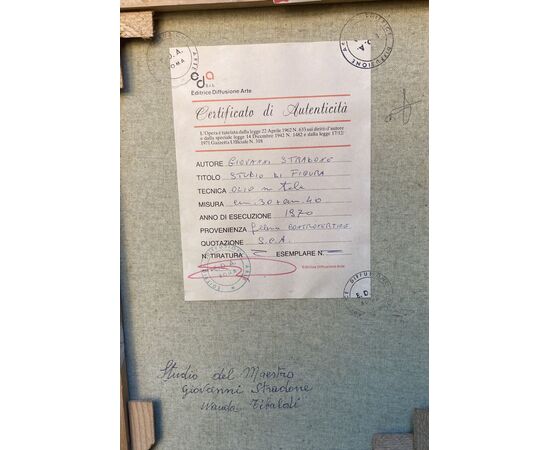 eda s.r.l.
Editrice Diffusione Arte
Certificato di Autenticità
L'Opera è tutelata dalla legge 22 Aprile 1962 N. 633 sui diritti d'autore
e dalla speciale legge 14 Dicembre 1942 N. 1482 e dalla legge 17/12/
1971 Gazzetta Ufficiale N. 318
AUTORE GIOVANNI STRADONE
TITOLO STUDIO DI FIGURA
TECNICA OLIO su tela
MISURA cm. 30 + cm. 40
ANNO DI ESECUZIONE 1970
PROVENIENZA firma
QUOTAZIONE
N. TIRATURA ESEMPLARE N.
Editrice Diffusione Arte
EDITRICE DIFFUSIONE ARTE
E. D. A.
ROMA
Studio del Maestro
Giovanni Stradone
Wanda Tibaldi